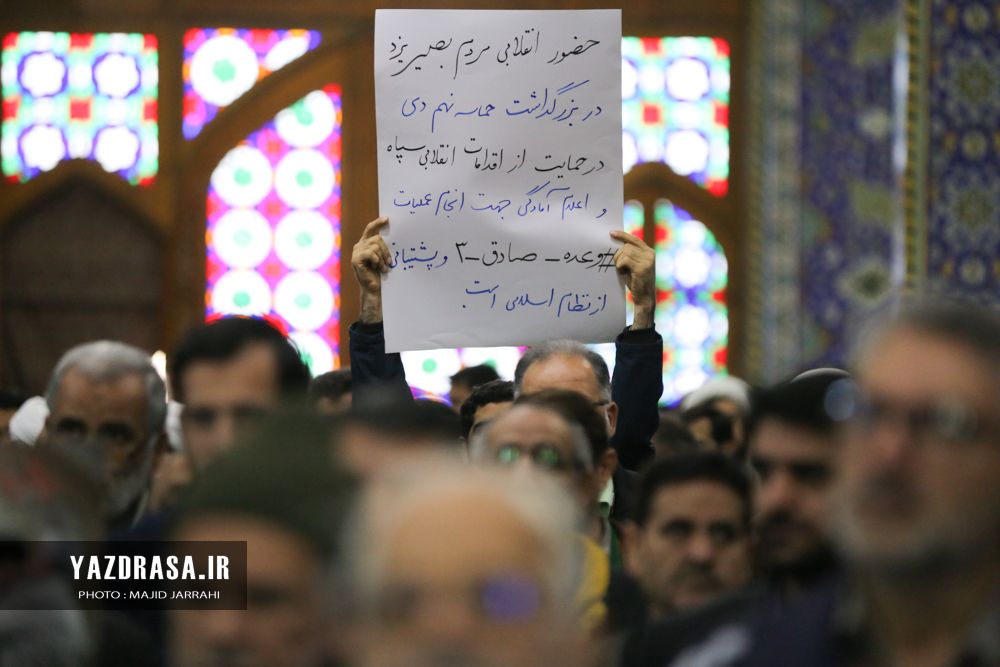 حضور انقلابی مردم بصیر یزد
در بزرگداشت حماسه نهم دی
در حمایت از اقدامات انقلابی سپاه
و اعلام آمادگی جهت انجام عملیات
#وعده_صادق_۳ و پشتیبانی
از نظام اسلامی است
YAZDRASA.IR
PHOTO : MAJID JARRAHI